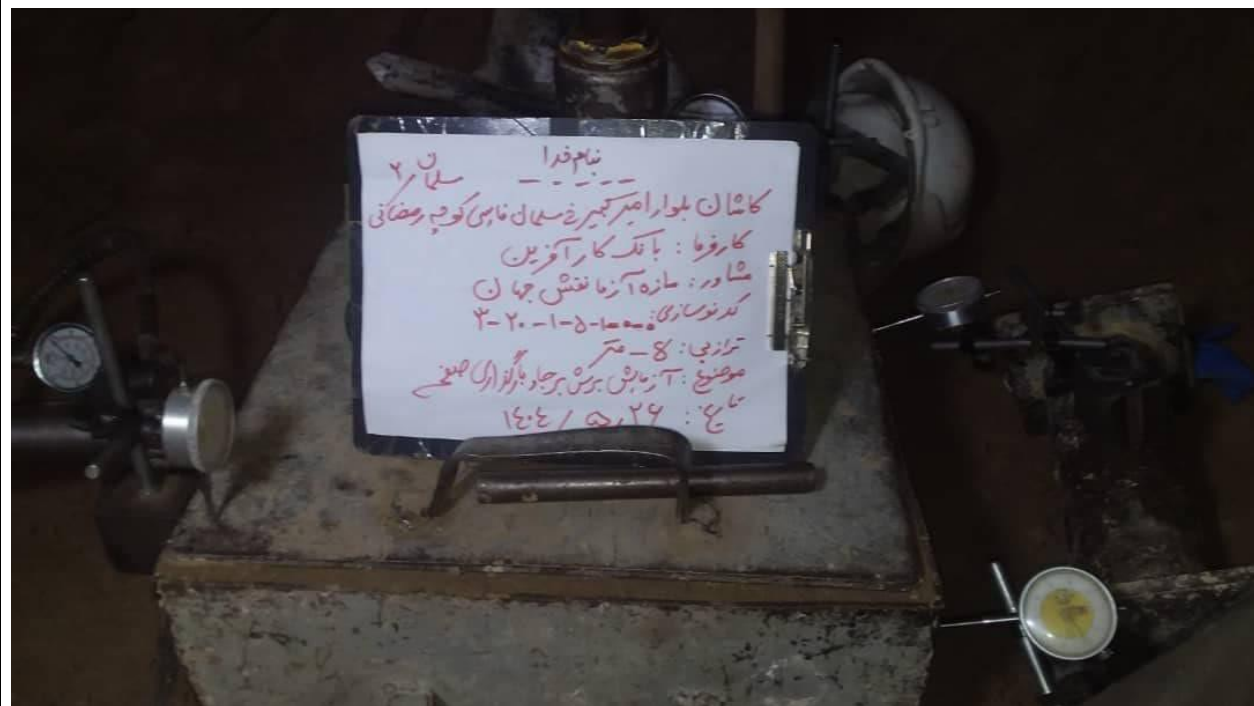 بنام خدا
سلمان ۲
کاشان بلوار امیرکبیر خ سلمان فارسی کوچه رمضانی
کارفرما : بانک کارآفرین
مشاور : سازه آزما نقش جهان
کد نوسازی :
۳-۲۰-۱-۵-۱۰۰-۰
تراز بی : ۸- متر
موضوع : آزمایش برش برجا و بارگذاری صفحه
تاریخ : ۲۶ / ۵ / ۱۴۰۴